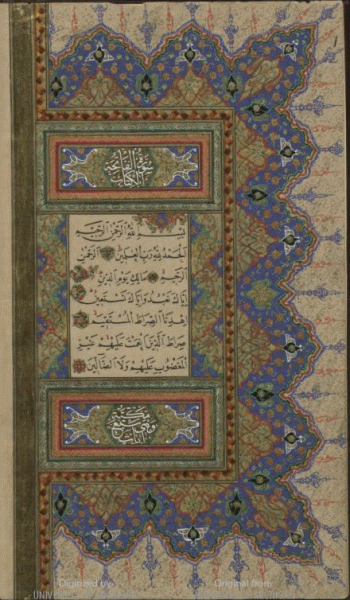 سورة الفاتحة
الكتاب
بسم الله الرحمن الرحيم
الحمد لله رب العالمين الرحمن
الرحيم مالك يوم الدين
اياك نعبد واياك نستعين
اهدنا الصراط المستقيم
صراط الذين انعمت عليهم غير
المغضوب عليهم ولا الضالين
مكية
وهي سبع
آيات
Digitized by
Original from